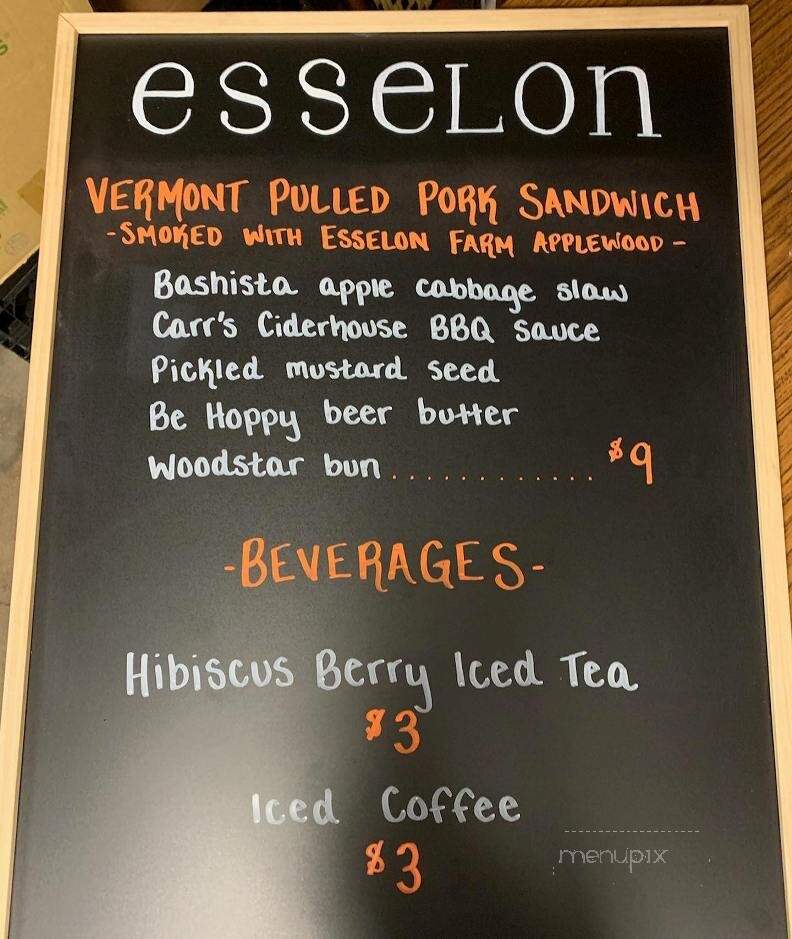 esseLon
VERMONT PULLED PORK SANDWICH
-SMOKED WITH ESSELON FARM APPLEWOOD-
Bashista apple cabbage slaw
Carr's Ciderhouse BBQ Sauce
Pickled mustard seed
Be Hoppy beer butter
Woodstar bun............. $9
-BEVERAGES-
Hibiscus Berry Iced Tea
$3
Iced Coffee
$3
menupix